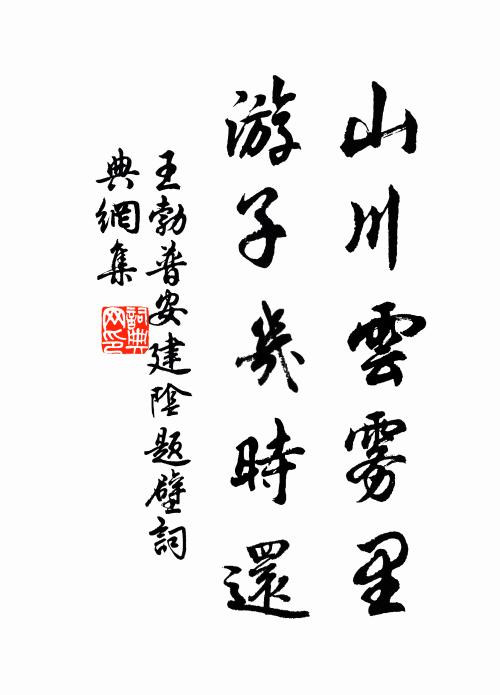 山川雲雾里
游子幾時還
王勃普安建陰題壁詞
典網集
詞典网印